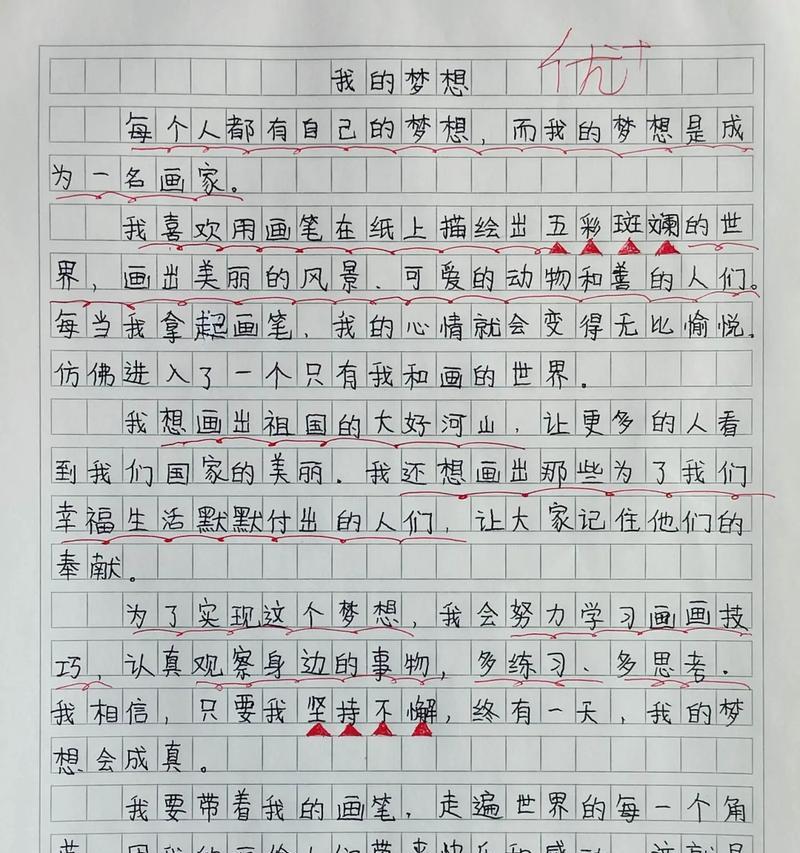 我的梦想
优+
每个人都有自己的梦想，而我的梦想是成
为一名画家。
我喜欢用画笔在纸上描绘出五彩斑斓的世
界，画出美丽的风景、可爱的动物和善的人们。
每当我拿起画笔，我的心情就会变得无比愉悦。
仿佛进入了一个只有我和画的世界。
我想画出祖国的大好河山，让更多的人看
到我们国家的美丽．我还想画出那些为了我们
幸福生活默默付出的人们，让大家记住他们的
奉献。
为了实现这个梦想，我会努力学习画画技
巧，认真观察身边的事物，多练习、多思考．
我相信，只要我坚持不懈，终有一天，我的梦
想会成真。
我要带着我的画笔，走遍世界的每一个角